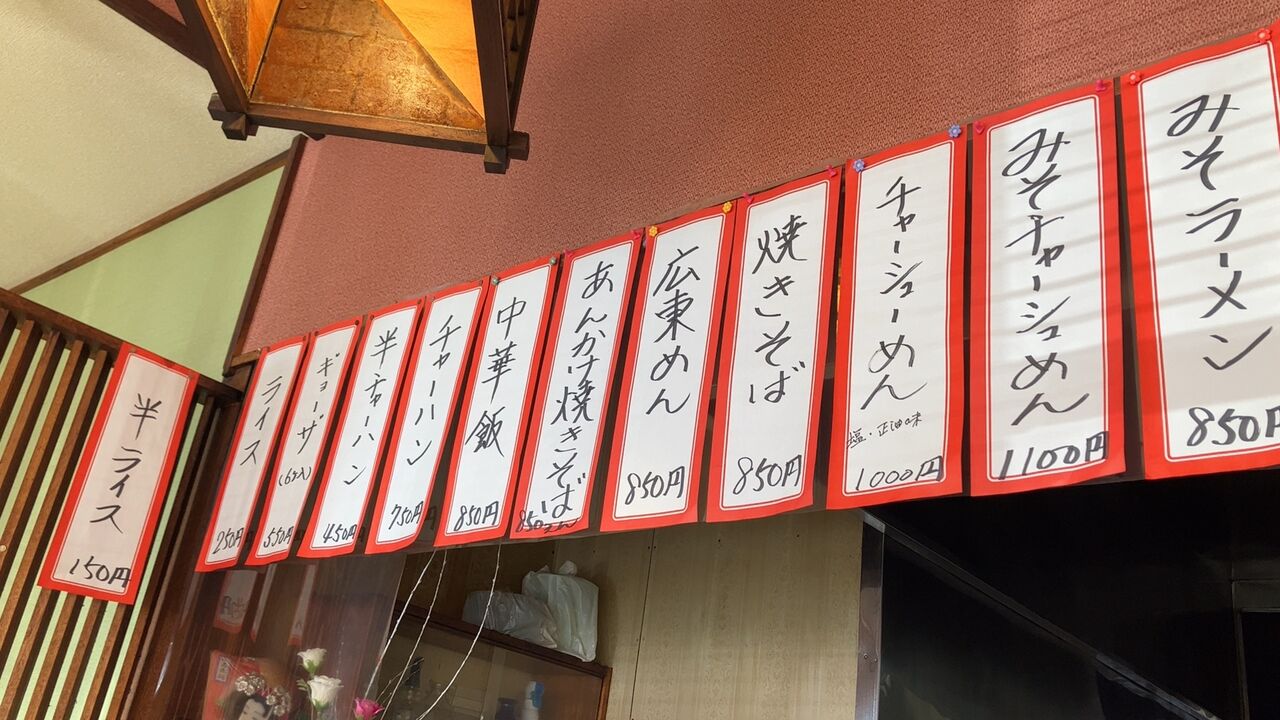 みそラーメン
850円
みそチャーシュめん
1100円
チャーシューめん
塩・正油味
1000円
焼きそば
850円
広東めん
850円
あんかけ焼きそば
850円
中華飯
850円
チャーハン
750円
半チャーハン
450円
ギョーザ
(6ヶ入)
550円
ライス
250円
半ライス
150円